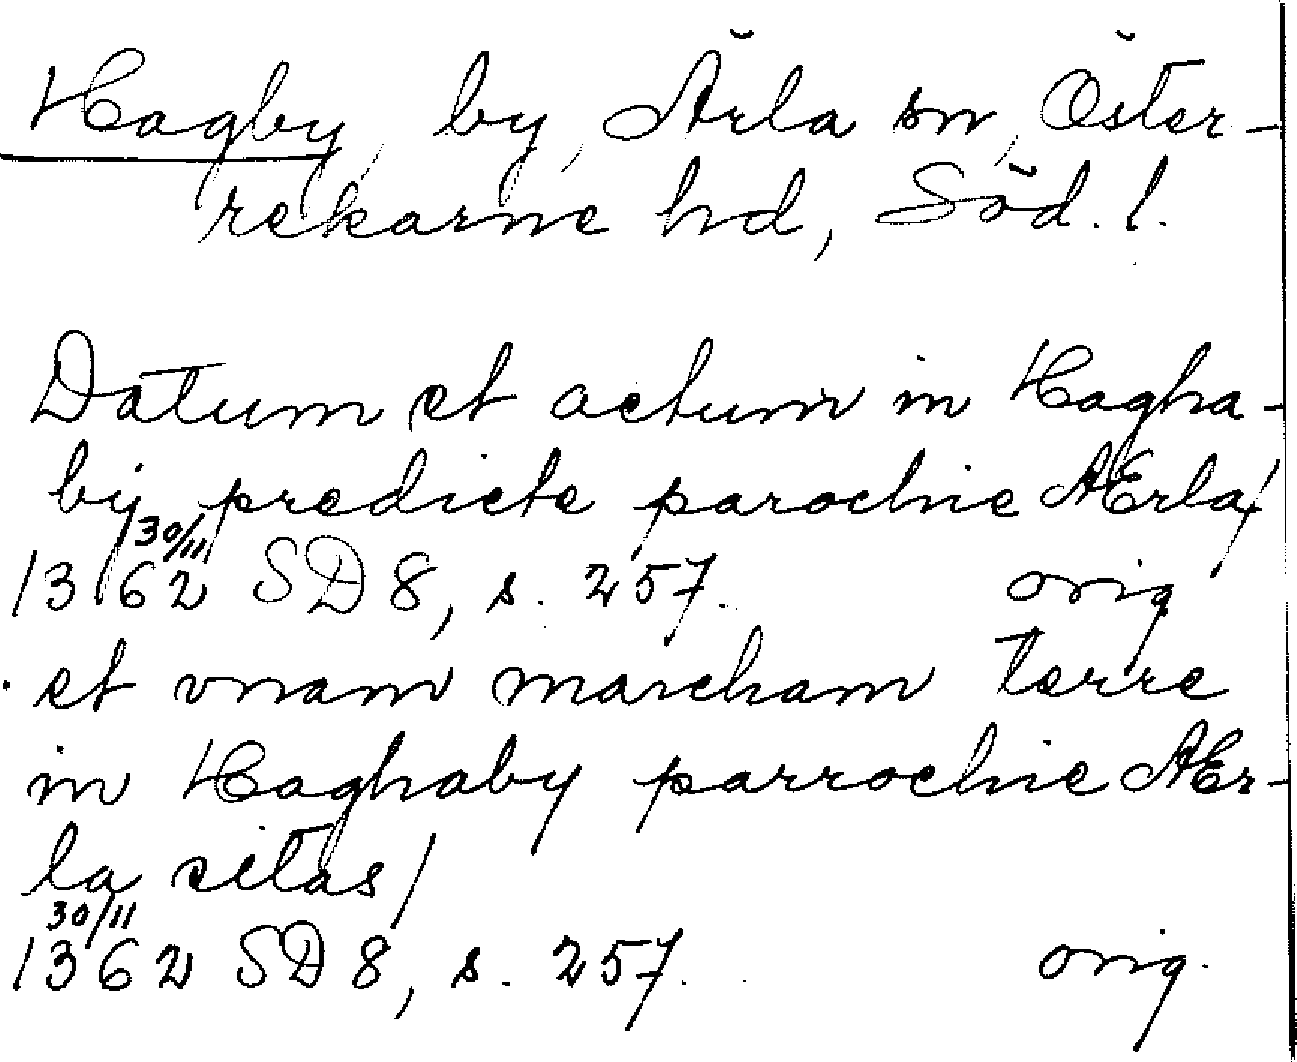 Hagby, by, Ärla sn, Öster-
rekarne hd, Söd. l.
Datum et actum in Hagha-
bij predicte parochie AErla/
30/11
1362 SD 8, s. 257. orig
et vnam marcham terre
in Haghaby parrochie AEr-
la sitas/
30/11
1362 SD 8, s. 257. orig.